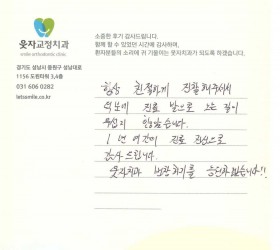 웃자교정치과
경기도 성남시 중원구 성남대로
1156 도원타워 3,4층
031 606 0282
letsmile.co.kr
소중한 후기 감사드립니다.
함께 할 수 있었던 시간에 감사하며,
환자분들의 소리에 귀 기울이는 웃자치과가 되도록 하겠습니다.
항상 친절하게 진찰해주셔서
진료 받으러 오는 길이
1년 여간의 진료 진심으로
감사드립니다.
웃자치과